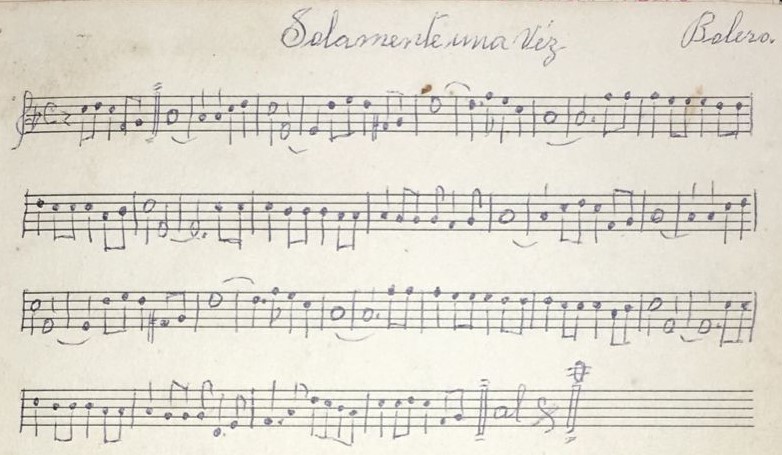 Solamente una Véz
Bolero.
al